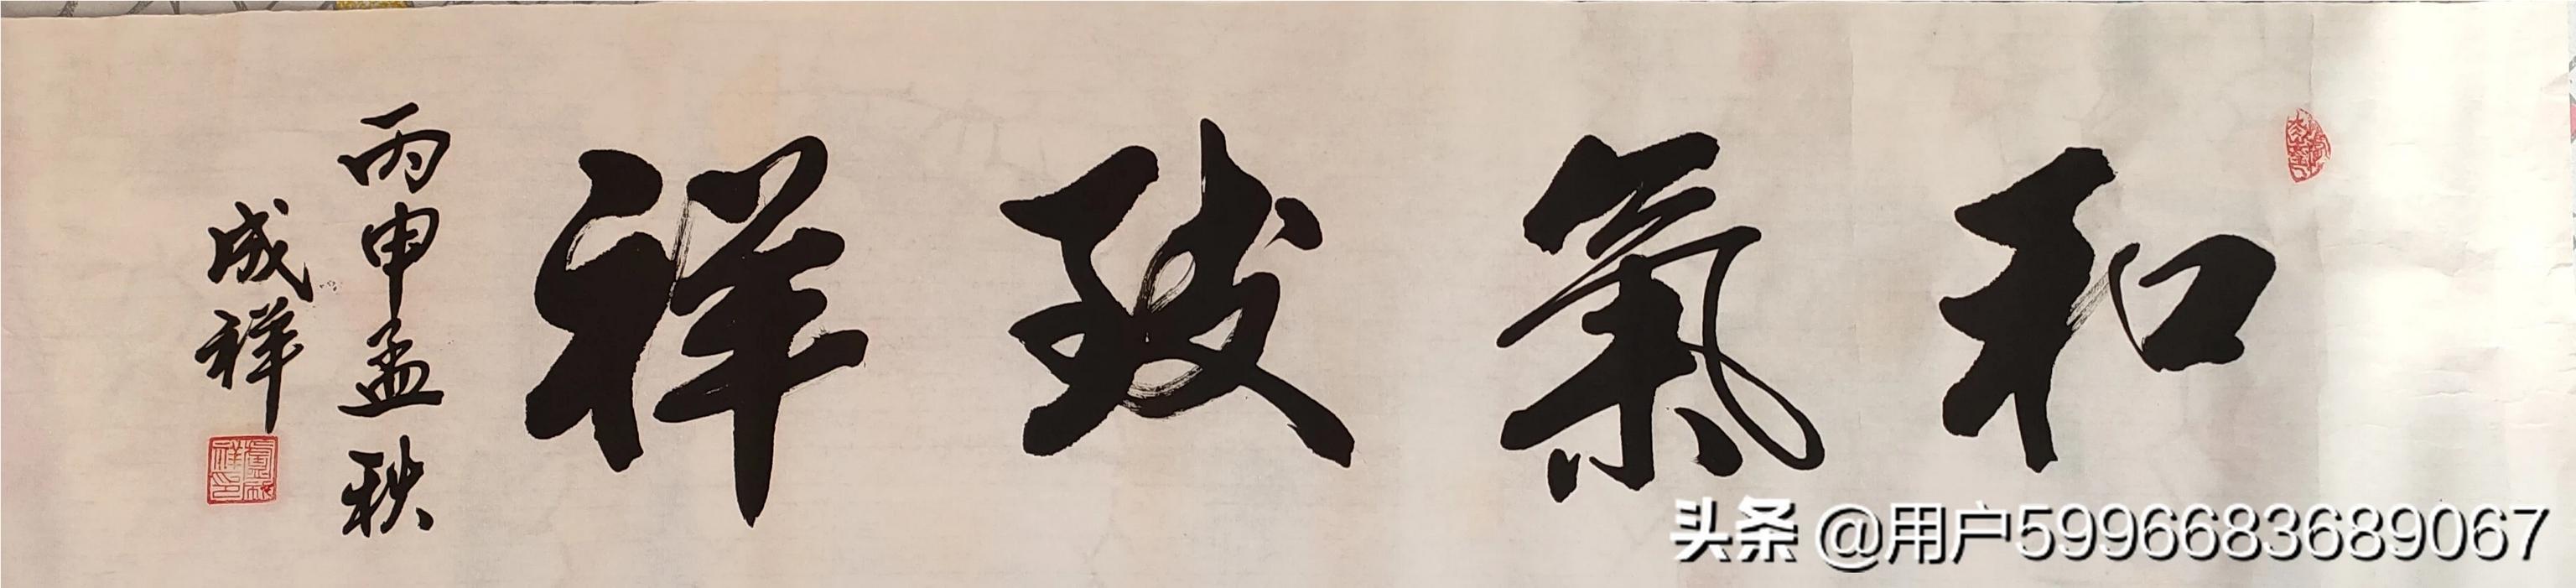 和氣致祥
丙申孟秋
成祥
头条 @用户5996683689067